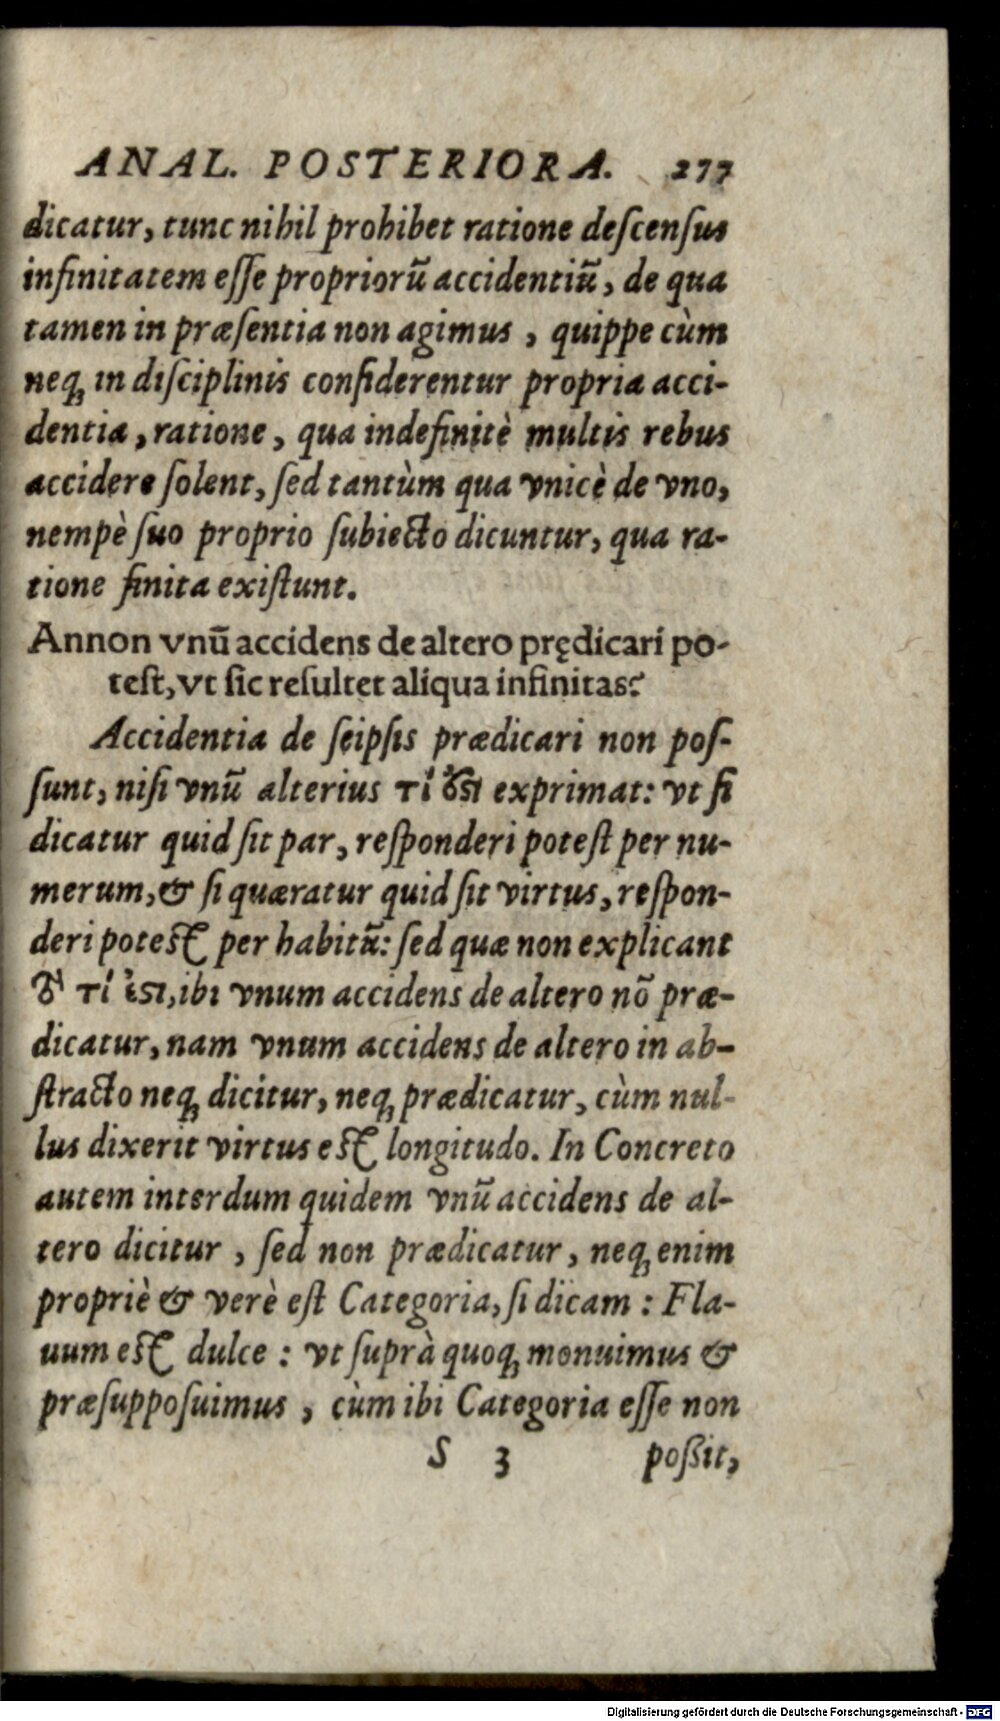 ANAL. POSTERIORA. 277
dicatur, tunc nihil prohibet ratione deſcenſus
infinitatem eſſe propriorũ accidentiũ, de qua
tamen in præſentia non agimus, quippe cùm
neq; in diſciplinis conſiderentur propria acci-
dentia, ratione, qua indefinitè multis rebus
accidere ſolent, ſed tantùm qua vnicè de vno,
nempè ſuo proprio ſubiecto dicuntur, qua ra-
tione finita exiſtunt.
Annon vnũ accidens de altero prędicari po-
teſt, vt ſic reſultet aliqua infinitas?
Accidentia de ſeipſis prædicari non poſ-
ſunt, niſi vnũ alterius τί ὅξι exprimat: vt ſi
dicatur quid ſit par, reſponderi poteſt per nu-
merum, & ſi quæratur quid ſit virtus, reſpon-
deri poteſt per habitũ: ſed quæ non explicant
τὸ τί ἐϛι, ibi vnum accidens de altero nõ præ-
dicatur, nam vnum accidens de altero in ab-
ſtracto neq; dicitur, neq; prædicatur, cùm nul-
lus dixerit virtus eſt longitudo. In Concreto
autem interdum quidem vnũ accidens de al-
tero dicitur, ſed non prædicatur, neq; enim
propriè & verè eſt Categoria, ſi dicam: Fla-
uum eſt dulce: vt ſuprà quoq; monuimus &
præſuppoſuimus, cùm ibi Categoria eſſe non
S 3 poßit,
Digitalisierung gefördert durch die Deutsche Forschungsgemeinschaft - DFG